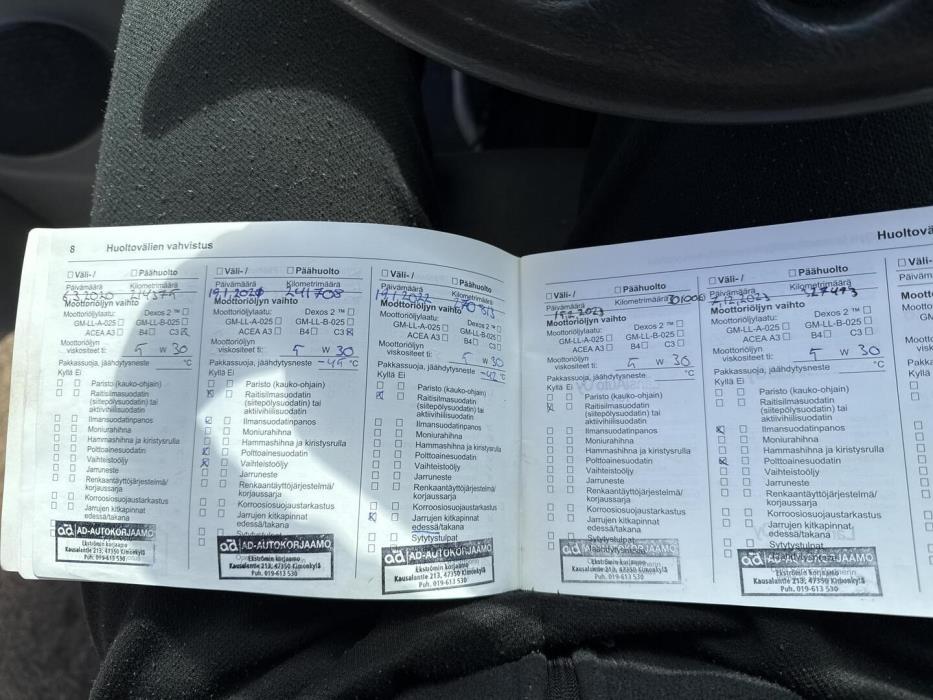 8 Huoltovälien vahvistus
☐ Väli- / ☐ Päähuolto
Päivämäärä Kilometrimäärä
6.3.2020 214375
Moottoriöljyn vaihto
Moottoriöljylaatu: Dexos 2 ™ ☐
GM-LL-A-025 ☐ GM-LL-B-025 ☐
ACEA A3 ☐ B4 ☐ C3 ☒
Moottoriöljyn
viskositeetti: 5 W 30
Pakkassuoja, jäähdytysneste °C
Kyllä Ei
☐ ☐ Paristo (kauko-ohjain)
☐ ☐ Raitisilmasuodatin
(siitepölysuodatin) tai
aktiivihiilisuodatin
☐ ☐ Ilmansuodatinpanos
☐ ☐ Moniurahihna
☐ ☐ Hammashihna ja kiristysrulla
☐ ☐ Polttoainesuodatin
☐ ☐ Vaihteistoöljy
☐ ☐ Jarruneste
☐ ☐ Renkaantäyttöjärjestelmä/
korjaussarja
☐ ☐ Korroosiosuojaustarkastus
☐ ☐ Jarrujen kitkapinnat
edessä/takana
ad AD-AUTOKORJAAMO
Ekströmin korjaamo
Kausalantie 213, 47350 Kimonkylä
Puh. 019-613 530
☐ Väli- / ☐ Päähuolto
Päivämäärä Kilometrimäärä
19.1.2021 241708
Moottoriöljyn vaihto
Moottoriöljylaatu: Dexos 2 ™ ☐
GM-LL-A-025 ☐ GM-LL-B-025 ☐
ACEA A3 ☐ B4 ☐ C3 ☒
Moottoriöljyn
viskositeetti: 5 W 30
Pakkassuoja, jäähdytysneste °C
Kyllä Ei
☐ ☐ Paristo (kauko-ohjain)
☒ ☐ Raitisilmasuodatin
(siitepölysuodatin) tai
aktiivihiilisuodatin
☒ ☐ Ilmansuodatinpanos
☐ ☐ Moniurahihna
☐ ☐ Hammashihna ja kiristysrulla
☒ ☐ Polttoainesuodatin
☒ ☐ Vaihteistoöljy
☐ ☐ Jarruneste
☐ ☐ Renkaantäyttöjärjestelmä/
korjaussarja
☐ ☐ Korroosiosuojaustarkastus
☐ ☐ Jarrujen kitkapinnat
edessä/takana
ad AD-AUTOKORJAAMO
Ekströmin korjaamo
Kausalantie 213, 47350 Kimonkylä
Puh. 019-613 530
☐ Väli- / ☐ Päähuolto
Päivämäärä Kilometrimäärä
19.1.2022 270313
Moottoriöljyn vaihto
Moottoriöljylaatu: Dexos 2 ™ ☐
GM-LL-A-025 ☐ GM-LL-B-025 ☐
ACEA A3 ☐ B4 ☐ C3 ☐
Moottoriöljyn
viskositeetti: 5 W 30
Pakkassuoja, jäähdytysneste -42 °C
Kyllä Ei
☐ ☐ Paristo (kauko-ohjain)
☒ ☐ Raitisilmasuodatin
(siitepölysuodatin) tai
aktiivihiilisuodatin
☐ ☐ Ilmansuodatinpanos
☐ ☐ Moniurahihna
☐ ☐ Hammashihna ja kiristysrulla
☐ ☐ Polttoainesuodatin
☐ ☐ Vaihteistoöljy
☐ ☐ Jarruneste
☐ ☐ Renkaantäyttöjärjestelmä/
korjaussarja
☐ ☐ Korroosiosuojaustarkastus
☒ ☐ Jarrujen kitkapinnat
edessä/takana
☐ ☐ Sytytystulpat
ad AD-AUTOKORJAAMO
Ekströmin korjaamo
Kausalantie 213, 47350 Kimonkylä
Puh. 019-613 530
Huoltovä
☐ Väli- / ☐ Päähuolto
Päivämäärä Kilometrimäärä
Moottoriöljyn vaihto
Moottoriöljylaatu: Dexos 2 ™ ☐
GM-LL-A-025 ☐ GM-LL-B-025 ☐
ACEA A3 ☐ B4 ☐ C3 ☐
Moottoriöljyn
viskositeetti: 5 W 30
Pakkassuoja, jäähdytysneste °C
Kyllä Ei
☐ ☐ Paristo (kauko-ohjain)
☒ ☐ Raitisilmasuodatin
(siitepölysuodatin) tai
aktiivihiilisuodatin
☐ ☐ Ilmansuodatinpanos
☐ ☐ Moniurahihna
☐ ☐ Hammashihna ja kiristysrulla
☐ ☐ Polttoainesuodatin
☐ ☐ Vaihteistoöljy
☐ ☐ Jarruneste
☐ ☐ Renkaantäyttöjärjestelmä/
korjaussarja
☐ ☐ Korroosiosuojaustarkastus
☐ ☐ Jarrujen kitkapinnat
edessä/takana
☐ ☐ Sytytystulpat
ad AD-AUTOKORJAAMO
Ekströmin korjaamo
Kausalantie 213, 47350 Kimonkylä
Puh. 019-613 530
☐ Väli- / ☐ Päähuolto
Päivämäärä Kilometrimäärä
7.12.2023 327473
Moottoriöljyn vaihto
Moottoriöljylaatu: Dexos 2 ™ ☐
GM-LL-A-025 ☐ GM-LL-B-025 ☐
ACEA A3 ☐ B4 ☐ C3 ☐
Moottoriöljyn
viskositeetti: 5 W 30
Pakkassuoja, jäähdytysneste °C
Kyllä Ei
☐ ☐ Paristo (kauko-ohjain)
☐ ☐ Raitisilmasuodatin
(siitepölysuodatin) tai
aktiivihiilisuodatin
☒ ☐ Ilmansuodatinpanos
☐ ☐ Moniurahihna
☐ ☐ Hammashihna ja kiristysrulla
☒ ☐ Polttoainesuodatin
☐ ☐ Vaihteistoöljy
☐ ☐ Jarruneste
☐ ☐ Renkaantäyttöjärjestelmä/
korjaussarja
☐ ☐ Korroosiosuojaustarkastus
☐ ☐ Jarrujen kitkapinnat
edessä/takana
☐ ☐ Sytytystulpat
ad AD-AUTOKORJAAMO
Ekströmin korjaamo
Kausalantie 213, 47350 Kimonkylä
Puh. 019-613 530